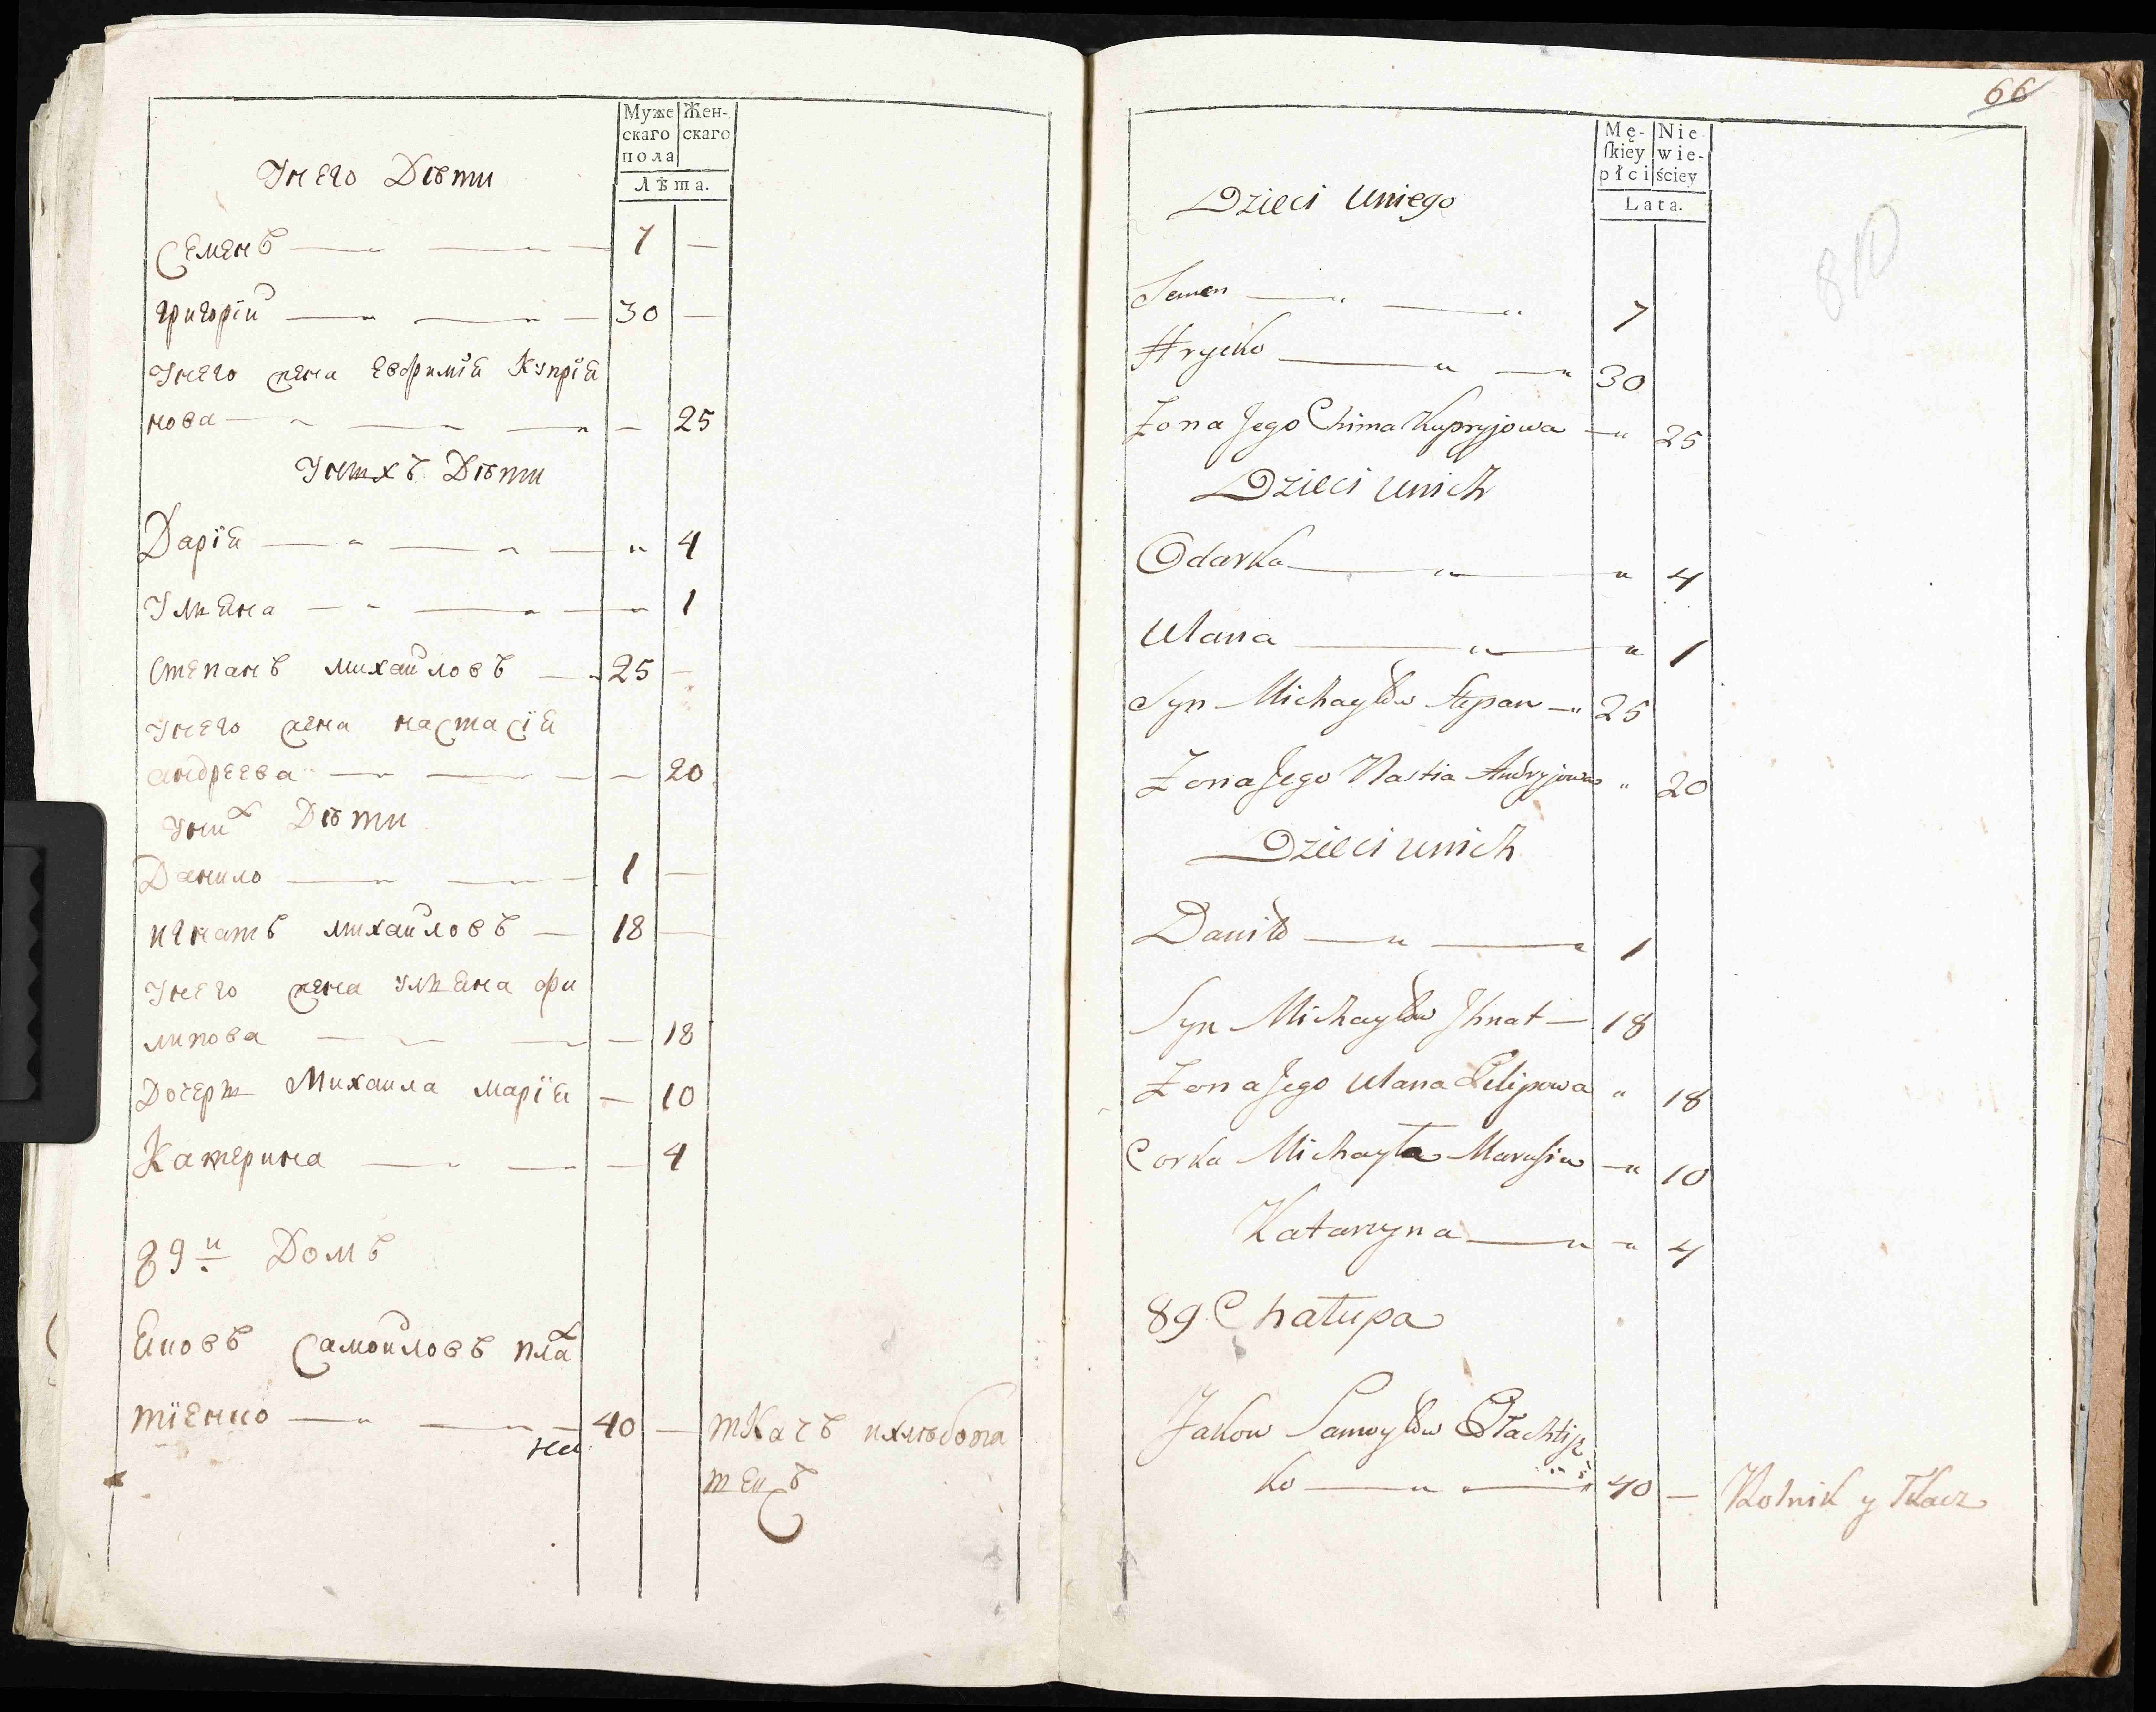 Муже
скаго
пола
Жен-
скаго
Лѣта.
Унего Дѣти
Семенъ 7
григорій 30
Унего жена Евфимія Купрія
нова 25
Унихъ Дѣти
Дарія 4
Уляна 1
Степанъ михайловъ 25
Унего жена настасія
андреева 20
Уних Дѣти
Данило 1
игнатъ михайловъ 18
Унего жена уляна фи
липова 18
Дочерь Михаила марія 10
Катерина 4
89й Домъ
Яковъ Самойловъ плах
тіенко 40 ткачъ ихлѣбопа
шецъ
66
Mę-
ſkiey
płci
Nie
wie-
ściey
Lata.
810
Dzieci Uniego
Semen 7
Hrycko 30
Zona Jego Chima Kupryjowa 25
Dzieci Unich
Odarka 4
Ulana 1
Syn Michayłów Stepan 25
Zona Jego Nastia Andryjowa 20
Dzieci Unich
Daniło 1
Syn Michayłów Ihnat 18
Zona Jego Ulana Pilipowa 18
Corka Michayła Marusia 10
Katarzyna 4
89 Chałupa
Jakow Samoyłów Płachtij
ko 40 Rolnik y Tkacz